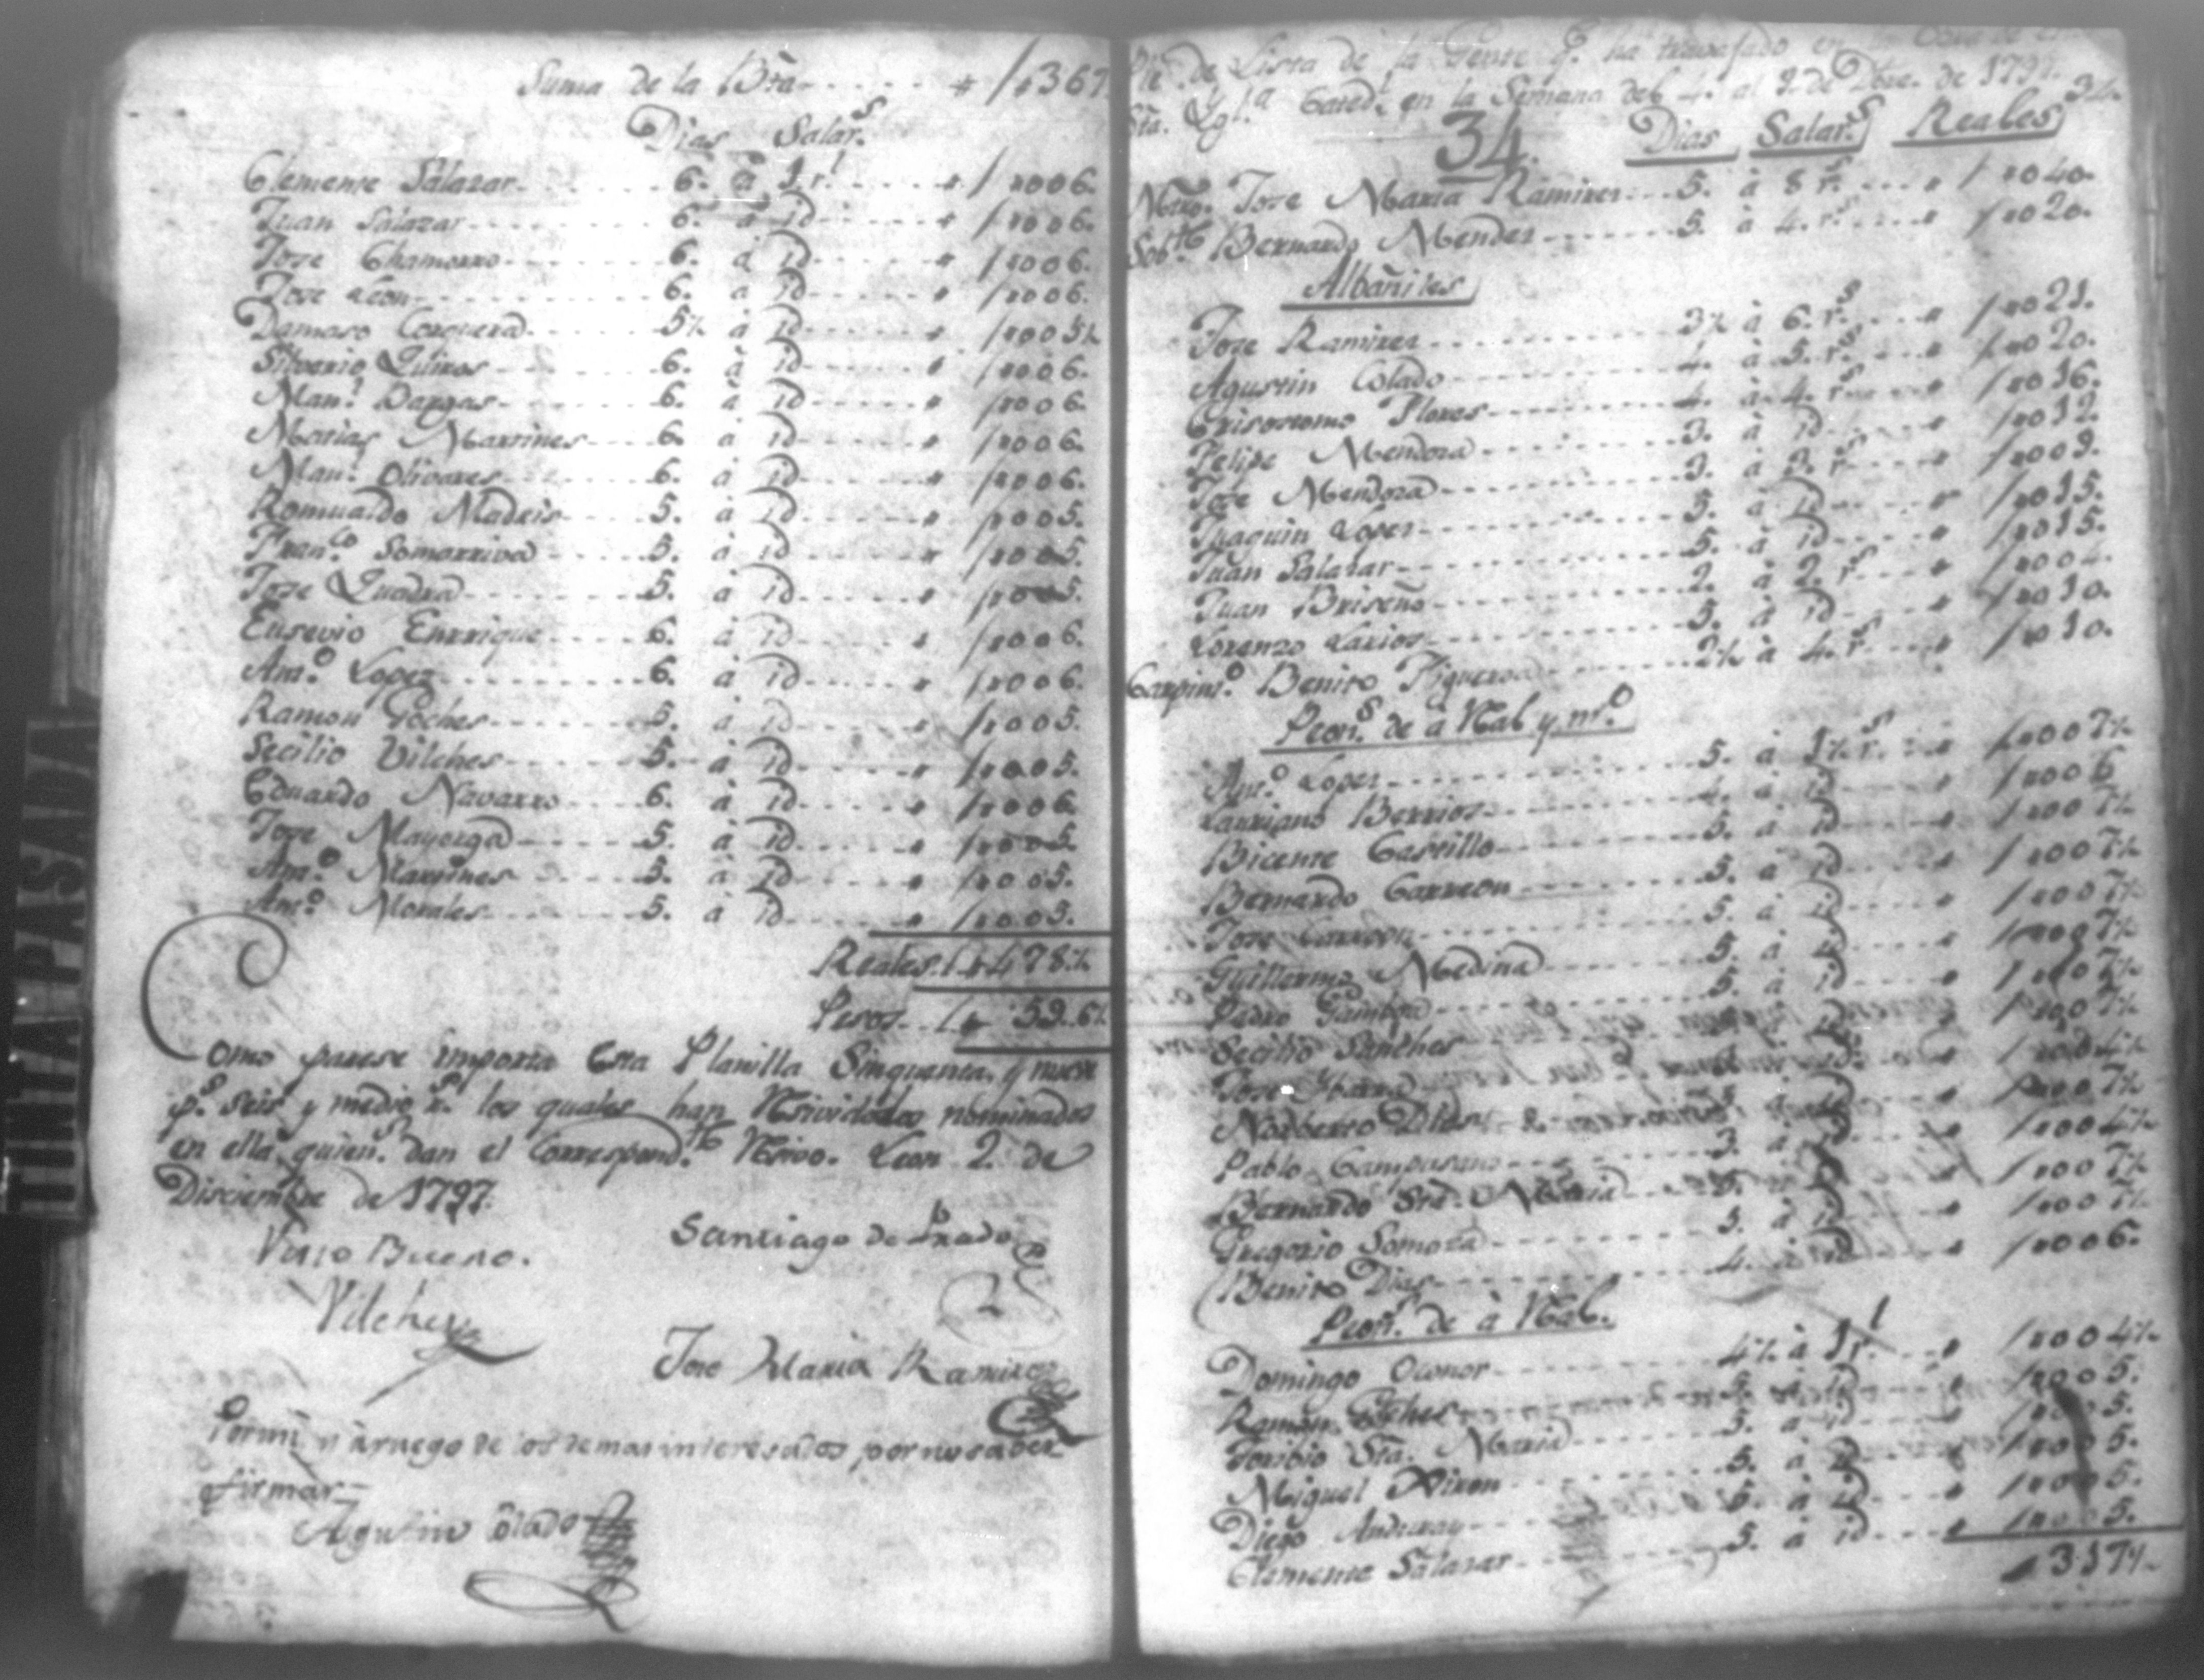 Suma de la Bta ---- # / "367
Dias Salar.s
Clemente Salazar ---- 6. à 1 r.l ---- " / "006.
Juan Salazar ---- 6. à id ---- " / "006.
Jose Chamorro ---- 6. à id ---- " / "006.
Jose Leon ---- 6. à id ---- " / "006.
Damaso Corquera ---- 5½ à id ---- " / "005½
Silverio Quiros ---- 6. à id ---- " / "006.
Man.l Vargas ---- 6. à id ---- " / "006.
Matias Martines ---- 6. à id ---- " / "006.
Man.l Olivares ---- 6. à id ---- " / "006.
Romualdo Madris ---- 5. à id ---- " / "005.
Fran.co Somarriva ---- 5. à id ---- " / "005.
Jose Quadra ---- 5. à id ---- " / "005.
Eusevio Enrrique ---- 6. à id ---- " / "006.
Ant.o Lopez ---- 6. à id ---- " / "006.
Ramon Goches ---- 5. à id ---- " / "005.
Secilio Vilches ---- 5. à id ---- " / "005.
Eduardo Navarro ---- 6. à id ---- " / "006.
Jose Mayorga ---- 5. à id ---- " / "005.
Ant.o Martines ---- 5. à id ---- " / "005.
Ant.o Morales ---- 5. à id ---- " / "005.
Reales / "478½
Pesos / " 59.6½
Como parese importa Esta Planilla Sinquenta, y nueve
p.s seis y medio r.s los quales han Resivido los nominados
en ella quien.s dan el Correspond.te Resivo. Leon 2 de
Disciembre de 1797.
Visto Bueno. Santiago de Prado
Vilches
Jose Maria Ramires
Por mi y à ruego de los demas interesados por no saber
firmar
Agustin Colado
Lista de la Gente q.e ha travajado en
Sta. Ygl.a Cated.l en la Semana del 4. al 9. de Dbre. de 1797. 34.
34. Dias Salar.s Reales
Mtro. Jose Maria Ramires ---- 5. à 8 r.s ---- " / "040.
Sob.te Bernardo Mendes ---- 5. à 4. r.s ---- " / "020.
Albañiles
Jose Ramires ---- 3½ à 6. r.s ---- " / "021.
Agustin Colado ---- 4. à 5. r.s ---- " / "020.
Crisostomo Flores ---- 4. à 4. r.s ---- " / "016.
Felipe Mendoza ---- 3. à id ---- " / "012.
Jose Mendoza ---- 3. à 3. r.s ---- " / "009.
Juaquin Lopez ---- 5. à id ---- " / "015.
Juan Salazar ---- 5. à id ---- " / "015.
Juan Briseño ---- 2. à 2. r.s ---- " / "004.
Lorenzo Larios ---- 5. à id ---- " / "010.
Carpint.o Benito Figueroa ---- 2½ à 4. r.s ---- " / "010.
Peon.s de à Real y m.o
Ant.o Lopez ---- 5. à 1½ r.s ---- " / "007½
Laureano Berrios ---- 4. à id ---- " / "006
Bicente Castillo ---- 5. à id ---- " / "007½
Bernardo Carreon ---- 5. à id ---- " / "007½
Jose Carreon ---- 5. à id ---- " / "007½
Guillermo Medina ---- 5. à id ---- " / "007½
Pedro Gamboa ---- 5. à id ---- " / "007½
Secilio Sanches ---- " / "007½
Jose Ybarra ---- " / "004½
Norberto Dias ---- " / "007½
Pablo Campusano ---- 3. à id ---- " / "004½
Bernardo Sta. Maria ---- 5. à id ---- " / "007½
Gregorio Somoza ---- 5. à id ---- " / "007½
Benito Dias ---- 4. à id ---- " / "006.
Peon.s de à Real.
Domingo Oconor ---- 4½ à 1 r.l ---- " / "004½
Ramon Goches ---- 5. à id ---- " / "005.
Toribio Sta. Maria ---- 5. à id ---- " / "005.
Miguel Xiron ---- 5. à id ---- " / "005.
Diego Anduray ---- 5. à id ---- " / "005.
Clemente Salazar ---- 5. à id ---- " / "005.
" 317½